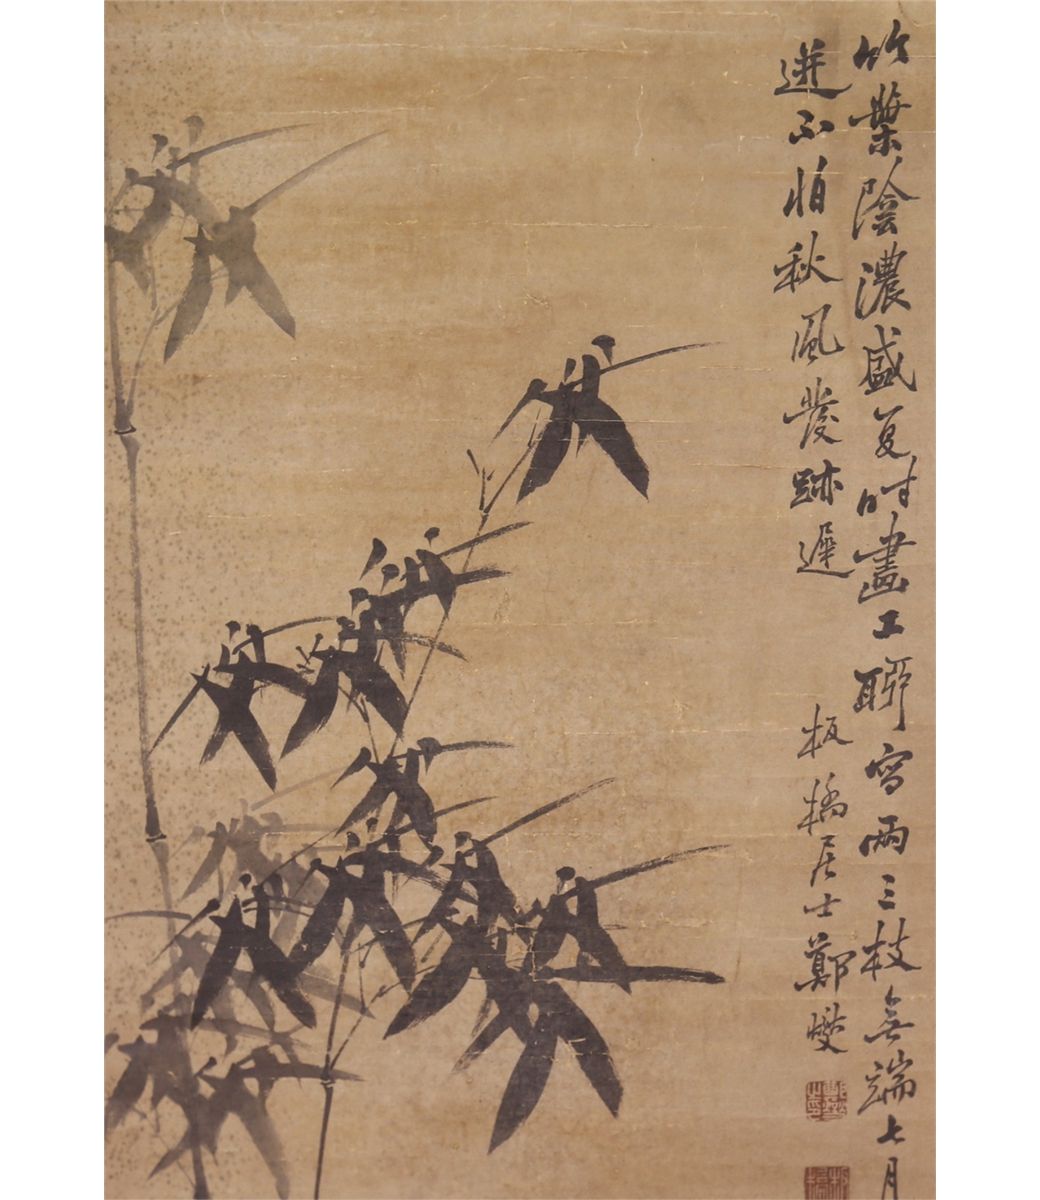 竹葉陰濃盛夏時畫工聊寫兩三枝無端七月
迸不怕秋風發跡遲
板橋居士鄭燮
鄭燮之印